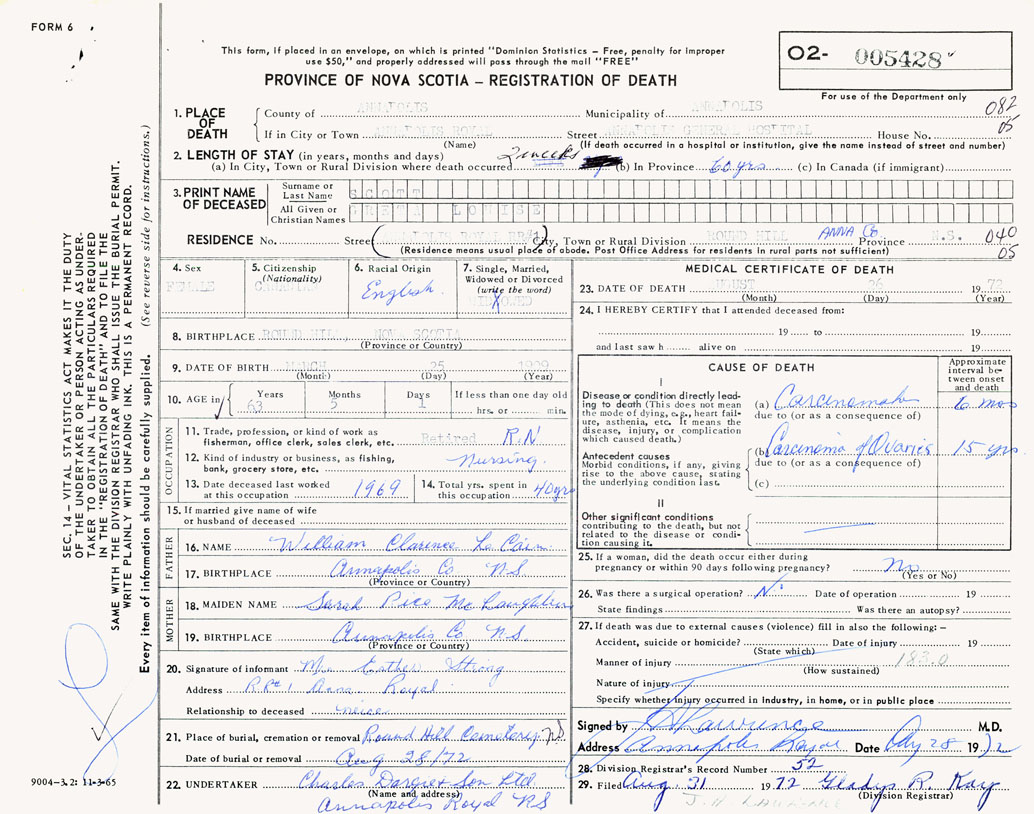 FORM 6
This form, if placed in an envelope, on which is printed "Dominion Statistics – Free, penalty for improper
use $50," and properly addressed will pass through the mail "FREE"
PROVINCE OF NOVA SCOTIA – REGISTRATION OF DEATH
O2- 005428
For use of the Department only
082
05
1. PLACE OF DEATH
County of ANNAPOLIS Municipality of ANNAPOLIS
If in City or Town ANNAPOLIS ROYAL Street ANNAPOLIS GENERAL HOSPITAL House No.
(Name) (If death occurred in a hospital or institution, give the name instead of street and number)
2. LENGTH OF STAY (in years, months and days)
(a) In City, Town or Rural Division where death occurred 2 weeks (b) In Province 60 yrs (c) In Canada (if immigrant)
3. PRINT NAME OF DECEASED
Surname or Last Name SCOTT
All Given or Christian Names GRETA LOUISE
RESIDENCE No. Street ANNAPOLIS ROYAL RR#1 City, Town or Rural Division ROUND HILL ANNA Co. Province N.S. 040
05
(Residence means usual place of abode. Post Office Address for residents in rural parts not sufficient)
4. Sex
FEMALE
5. Citizenship
(Nationality)
CANADIAN
6. Racial Origin
English
7. Single, Married,
Widowed or Divorced
(write the word)
WIDOWED
8. BIRTHPLACE ROUND HILL, NOVA SCOTIA
(Province or Country)
9. DATE OF BIRTH MARCH 25 1909
(Month) (Day) (Year)
10. AGE in Years Months Days If less than one day old
63 5 1 hrs. or min.
OCCUPATION
11. Trade, profession, or kind of work as
fisherman, office clerk, sales clerk, etc. Retired R.N
12. Kind of industry or business, as fishing,
bank, grocery store, etc. Nursing.
13. Date deceased last worked
at this occupation 1969
14. Total yrs. spent in
this occupation 40 yrs
15. If married give name of wife
or husband of deceased
FATHER
16. NAME William Clarence Le Cain
17. BIRTHPLACE Annapolis Co NS
(Province or Country)
MOTHER
18. MAIDEN NAME Sarah Mc Laughlin
19. BIRTHPLACE Annapolis Co NS
(Province or Country)
20. Signature of informant Mrs Esther Strong
Address R.R#1 Anna Royal
Relationship to deceased neice
21. Place of burial, cremation or removal Round Hill Cemetery NS
Date of burial or removal Aug 28/72
22. UNDERTAKER Charles Dargie & Son Ltd
(Name and address)
Annapolis Royal NS
MEDICAL CERTIFICATE OF DEATH
23. DATE OF DEATH AUGUST 26 1972
(Month) (Day) (Year)
24. I HEREBY CERTIFY that I attended deceased from:
19 to 19
and last saw h alive on 19
CAUSE OF DEATH
Approximate
interval be-
tween onset
and death
I
Disease or condition directly lead-
ing to death (This does not mean
the mode of dying, e.g., heart fail-
ure, asthenia, etc. It means the
disease, injury, or complication
which caused death.)
(a) 6 mos
due to (or as a consequence of)
Antecedent causes
Morbid conditions, if any, giving
rise to the above cause, stating
the underlying condition last.
(b) Carcinoma of Ovaries 15 yrs
due to (or as a consequence of)
(c)
II
Other significant conditions
contributing to the death, but not
related to the disease or condi-
tion causing it.
25. If a woman, did the death occur either during
pregnancy or within 90 days following pregnancy? No
(Yes or No)
26. Was there a surgical operation? No Date of operation 19
State findings Was there an autopsy?
27. If death was due to external causes (violence) fill in also the following: –
Accident, suicide or homicide? Date of injury 19
(State which)
Manner of injury 183.0
(How sustained)
Nature of injury
Specify whether injury occurred in Industry, in home, or in public place
Signed by Lawrence M.D.
Address Annapolis Royal Date Aug 28 1972
28. Division Registrar's Record Number 52
29. Filed Aug. 31 1972 Gladys R. Kay
J. H. LAWRENCE (Division Registrar)
SEC. 14 – VITAL STATISTICS ACT MAKES IT THE DUTY
OF THE UNDERTAKER OR PERSON ACTING AS UNDER-
TAKER TO OBTAIN ALL THE PARTICULARS REQUIRED
IN THE "REGISTRATION OF DEATH" AND TO FILE THE
SAME WITH THE DIVISION REGISTRAR WHO SHALL ISSUE THE BURIAL PERMIT.
WRITE PLAINLY WITH UNFADING INK. THIS IS A PERMANENT RECORD.
Every item of information should be carefully supplied. (See reverse side for instructions.)
9004-3.2: 11-3-65